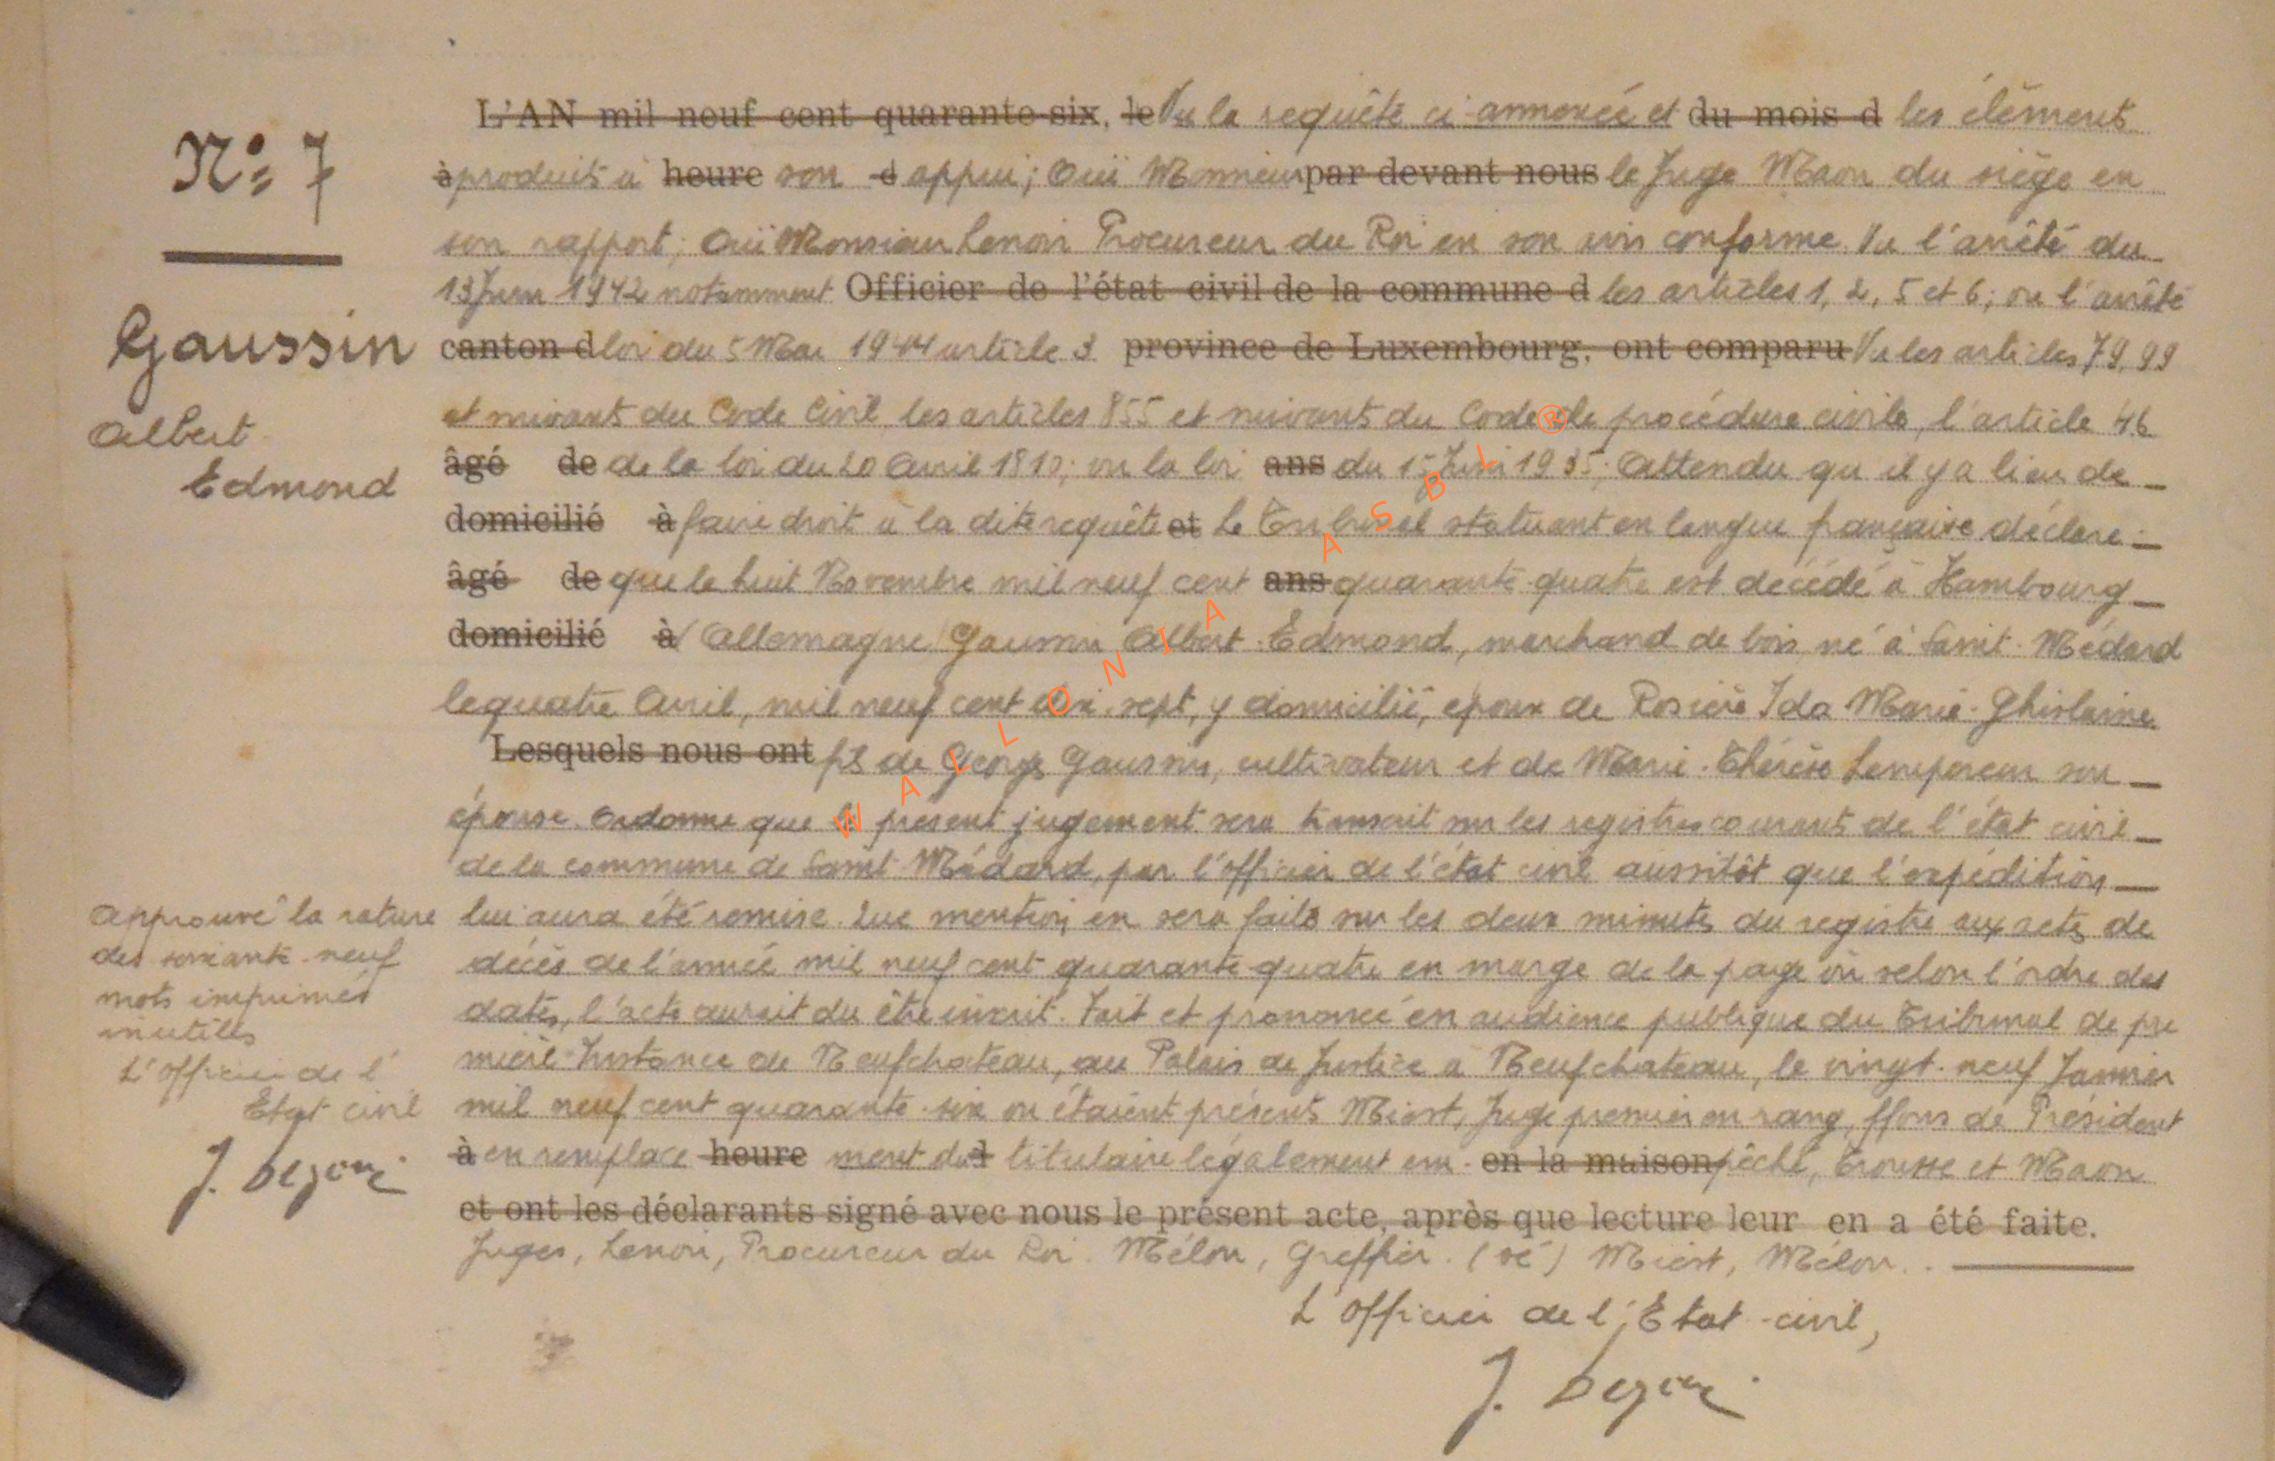 N° 7
Gaussin
Albert
Edmond
L'AN mil neuf cent quarante-six, le Vu la requête ci-annexée et du mois d les éléments
à produits à heure son d appui; Ouï Monsieur par devant nous le Juge Maon du siège en
son rapport; Ouï Monsieur Lenoir Procureur du Roi en son avis conforme. Vu l'arrêté du
13 Juin 1942 notamment Officier de l'état civil de la commune d les articles 1, 2, 5 et 6; vu l'arrêté
canton d loi du 5 Mai 1944 article 3 province de Luxembourg, ont comparu Vu les articles 79, 99
et suivants du Code Civil les articles 855 et suivants du Code de procédure civile, l'article 46
âgé de de la loi du 20 Avril 1810; vu la loi ans du 15 Juin 1935; Attendu qu'il y a lieu de
domicilié à faire droit à la dite requête et Le Tribunal statuant en langue française déclare
âgé de que le huit Novembre mil neuf cent ans quarante-quatre est décédé à Hambourg
domicilié à (Allemagne) Gaussin Albert-Edmond, marchand de bois, né à Saint-Médard
le quatre Avril, mil neuf cent dix-sept, y domicilié, époux de Rosière Ida Marie-Ghislaine
Lesquels nous ont fils de George Gaussin, cultivateur et de Marie-Thérèse Lempereur son
épouse. Ordonne que le présent jugement sera transcrit sur les registres courants de l'état civil
de la commune de Saint-Médard, par l'officier de l'état civil aussitôt que l'expédition
lui aura été remise. Que mention en sera faite sur les deux minutes du registre aux actes de
décès de l'année mil neuf cent quarante-quatre en marge de la page où selon l'ordre des
dates, l'acte aurait du être inscrit. Fait et prononcé en audience publique du Tribunal de pre
mière Instance de Neufchateau, au Palais de Justice à Neufchateau, le vingt-neuf Janvier
mil neuf cent quarante-six ou étaient présents Miest, Juge premier en rang, ffons de Président
à en remplace heure ment du d titulaire légalement em- en la maison pêché, Trousse et Maon
et ont les déclarants signé avec nous le présent acte, après que lecture leur en a été faite.
Juges, Lenoir, Procureur du Roi. Mélon, Greffier. (sé) Miest, Mélon.
L'Officier de l'Etat-civil,
Approuvé la rature
des soixante-neuf
mots imprimés
inutiles
L'Officier de l'
Etat civil
WALLONIA ASBL ®